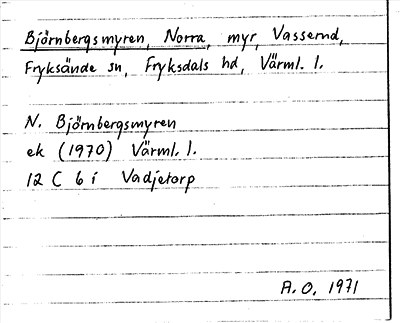 Björnbergsmyren, Norra, myr, Vassernd,
Fryksände sn, Fryksdals hd, Värml. l.
N. Björnbergsmyren
ek (1970) Värml. l.
12 C 6 i Vadjetorp
A. O. 1971